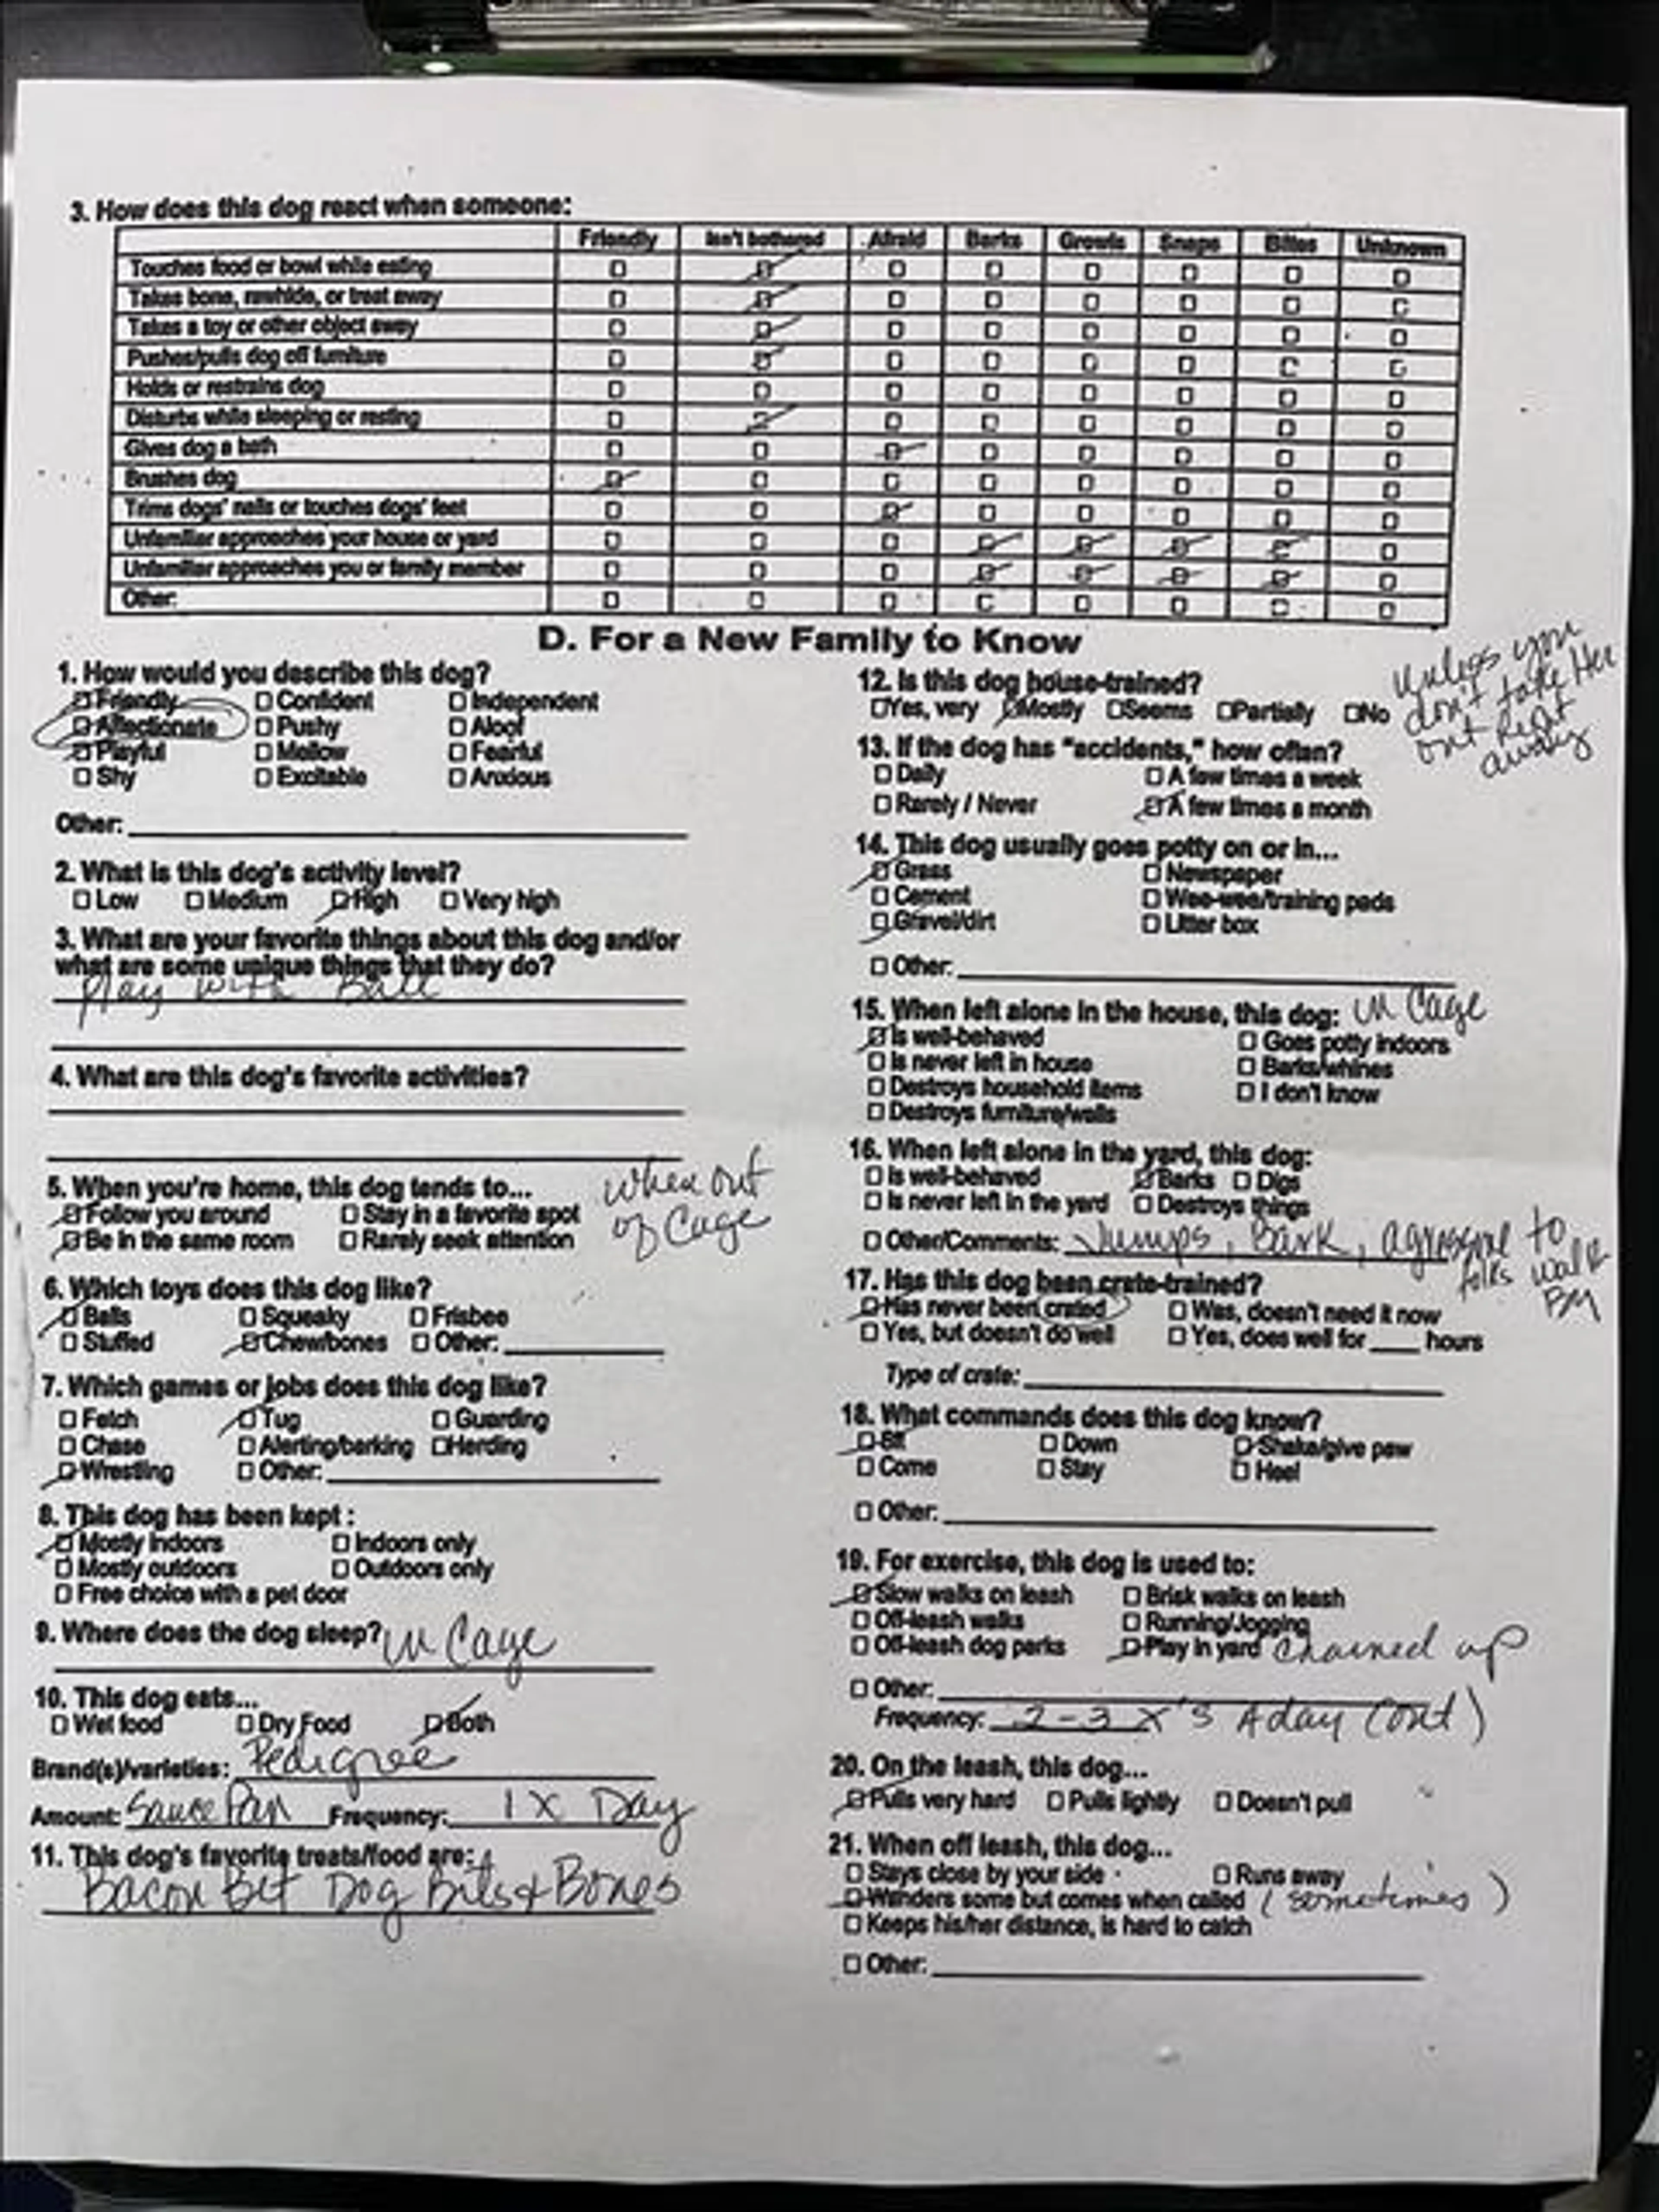 3. How does this dog react when someone:
Friendly Isn't bothered Afraid Barks Growls Snaps Bites Unknown
Touches food or bowl while eating
Takes bone, rawhide, or treat away
Takes a toy or other object away
Pushes/pulls dog off furniture
Holds or restrains dog
Disturbs while sleeping or resting
Gives dog a bath
Brushes dog
Trims dogs' nails or touches dogs' feet
Unfamiliar approaches your house or yard
Unfamiliar approaches you or family member
Other:
D. For a New Family to Know
1. How would you describe this dog?
Friendly Confident Independent
Affectionate Pushy Aloof
Playful Mellow Fearful
Shy Excitable Anxious
Other:
2. What is this dog's activity level?
Low Medium High Very high
3. What are your favorite things about this dog and/or
what are some unique things that they do?
Play with Ball
4. What are this dog's favorite activities?
5. When you're home, this dog tends to...
Follow you around Stay in a favorite spot
Be in the same room Rarely seek attention
when out
of Cage
6. Which toys does this dog like?
Balls Squeaky Frisbee
Stuffed Chew/bones Other:
7. Which games or jobs does this dog like?
Fetch Tug Guarding
Chase Alerting/barking Herding
Wrestling Other:
8. This dog has been kept :
Mostly indoors Indoors only
Mostly outdoors Outdoors only
Free choice with a pet door
9. Where does the dog sleep? in Cage
10. This dog eats...
Wet food Dry Food Both
Brand(s)/varieties: Pedigree
Amount: Sauce Pan Frequency: 1 X Day
11. This dog's favorite treats/food are:
Bacon Dog Bits & Bones
12. Is this dog house-trained?
Yes, very Mostly Seems Partially No
unless you
don't take Her
out Right
away
13. If the dog has "accidents," how often?
Daily A few times a week
Rarely / Never A few times a month
14. This dog usually goes potty on or in...
Grass Newspaper
Cement Wee-wee/training pads
Gravel/dirt Litter box
Other:
15. When left alone in the house, this dog: in Cage
Is well-behaved Goes potty indoors
Is never left in house Barks/whines
Destroys household items I don't know
Destroys furniture/walls
16. When left alone in the yard, this dog:
Is well-behaved Barks Digs
Is never left in the yard Destroys things
Other/Comments: Jumps, Bark, agressive to
folks walk
By
17. Has this dog been crate-trained?
Has never been crated Was, doesn't need it now
Yes, but doesn't do well Yes, does well for ____ hours
Type of crate:
18. What commands does this dog know?
Sit Down Shake/give paw
Come Stay Heel
Other:
19. For exercise, this dog is used to:
Slow walks on leash Brisk walks on leash
Off-leash walks Running/Jogging
Off-leash dog parks Play in yard chained up
Other:
Frequency: 2-3 X's A day (out)
20. On the leash, this dog...
Pulls very hard Pulls lightly Doesn't pull
21. When off leash, this dog...
Stays close by your side Runs away
Wanders some but comes when called (sometimes)
Keeps his/her distance, is hard to catch
Other: